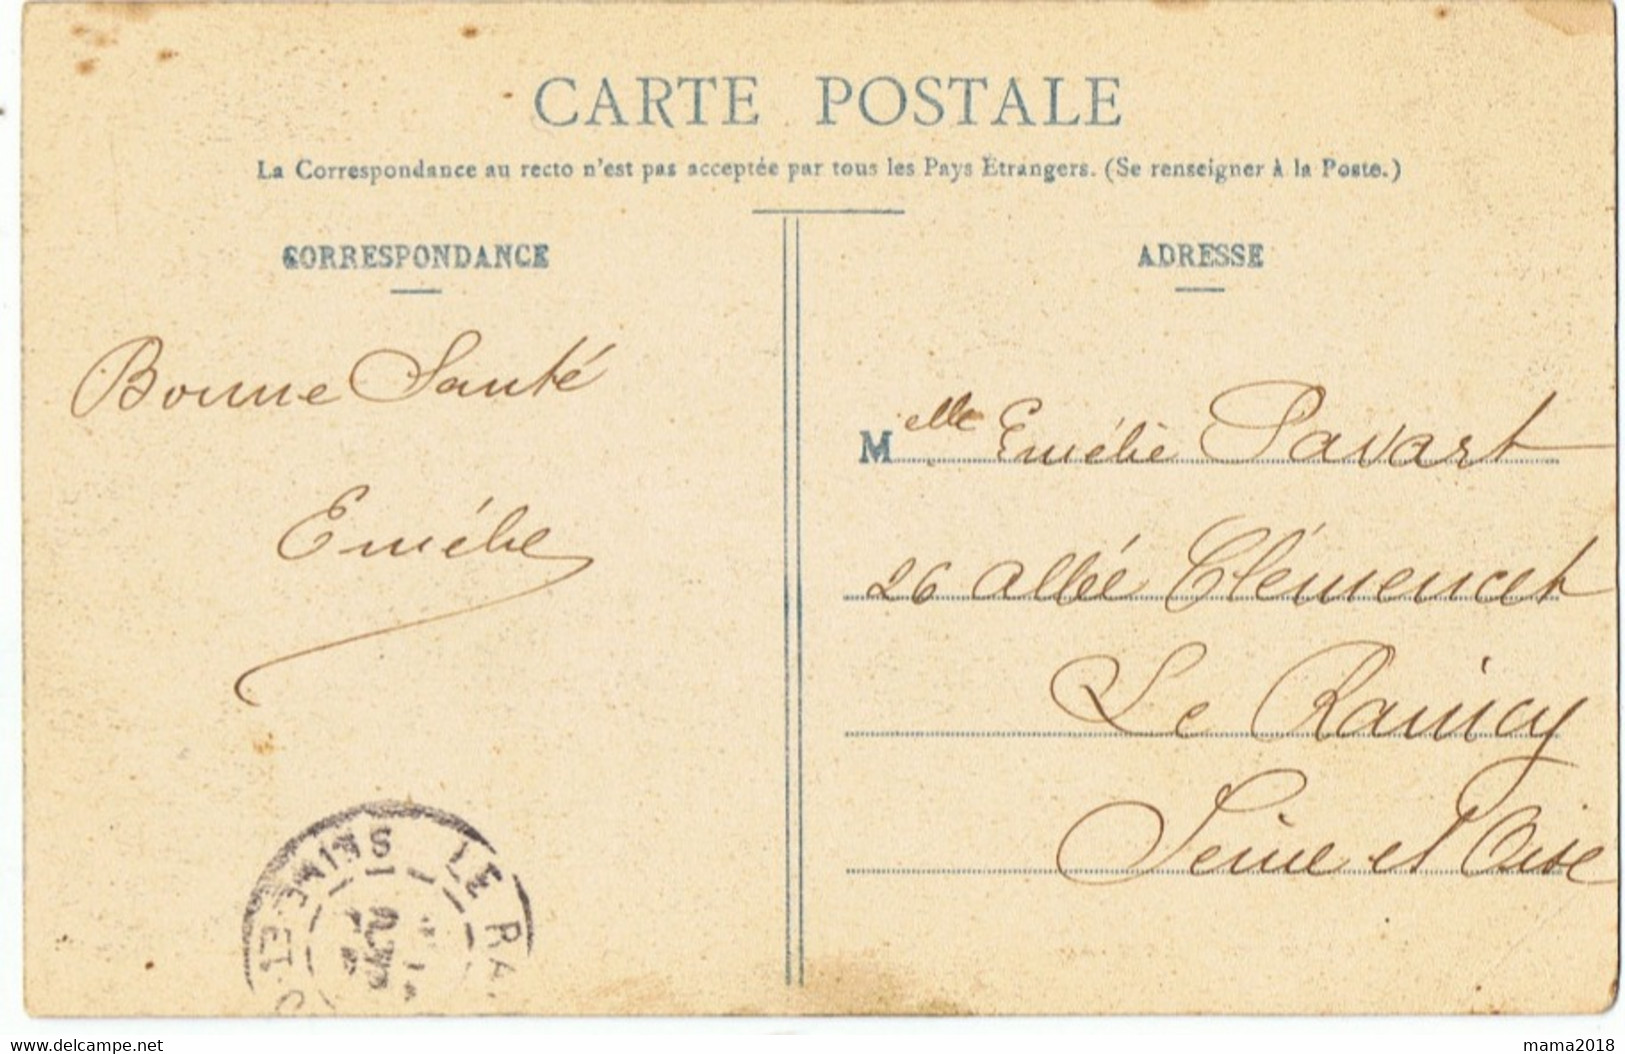 CARTE POSTALE
La Correspondance au recto n'est pas acceptée par tous les Pays Étrangers. (Se renseigner à la Poste.)
CORRESPONDANCE
Bonne Santé
Emélie
ADRESSE
Melle Emélie Pavart
26 allée Clémencet
Le Raincy
Seine et Oise
LE RA
SEINE-ET-O
www.delcampe.net
mama2018